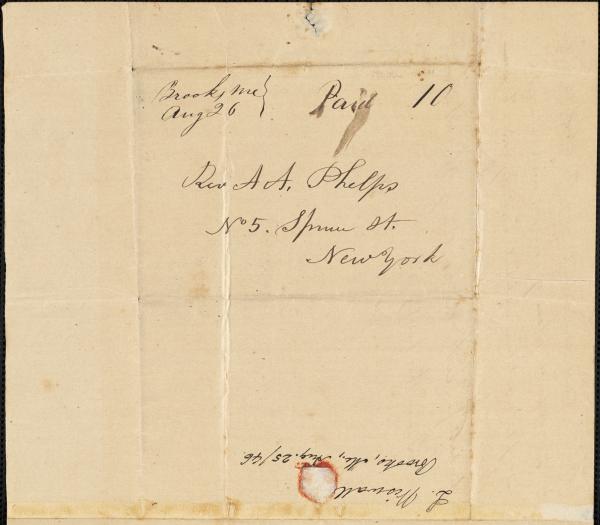 Brooks, Me
Aug 26
Paid 10
Rev A A. Phelps
No 5. Spruce St.
New York
L. Wiswall
Brooks, Me, Aug. 25/46